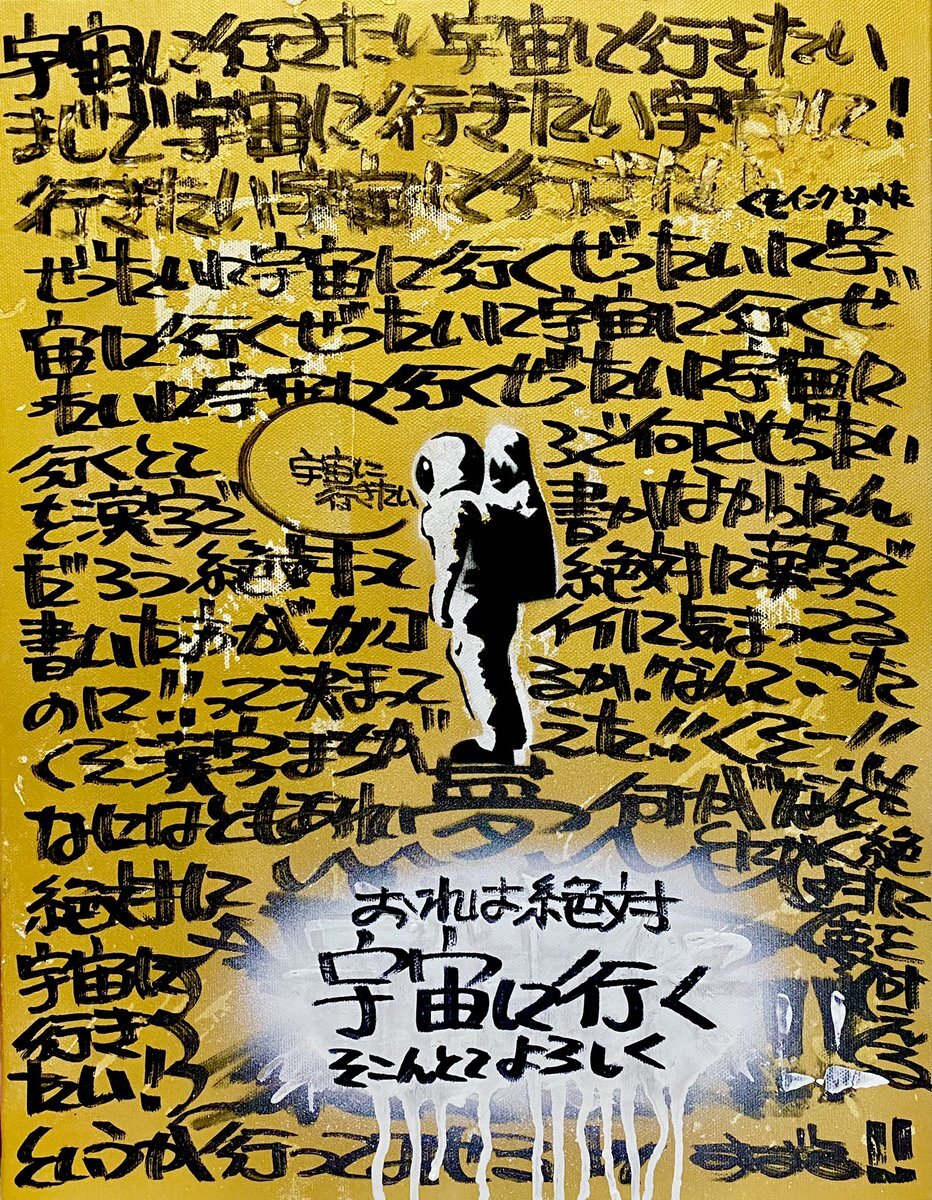 宇宙に行きたい宇宙に行きたい
まじで宇宙に行きたい宇宙に!
行きたい宇宙に行きたい
くそインク切れた
ぜったいに宇宙に行くぜったいに宇
宙に行くぜったいに宇宙に行くぜっ
たいに宇宙に行くぜったいに宇宙に
行くとこ
ろで何でぜったい
を漢字で
書かなかったん
だろう絶対って
絶対に漢字で
書いた方がカッコ
イイに気まってる
のに!!って決まって
るか!なんてこった
くそ漢字まちが
えた!!くそー!!
宇宙に
行きたい
なにはともあれ
夢
何が
とにかく絶
絶対に
対に
宇宙に
夢を
行き
たい!
おれは絶対
宇宙に行く
そこんとこよろしく
というか行って
!!